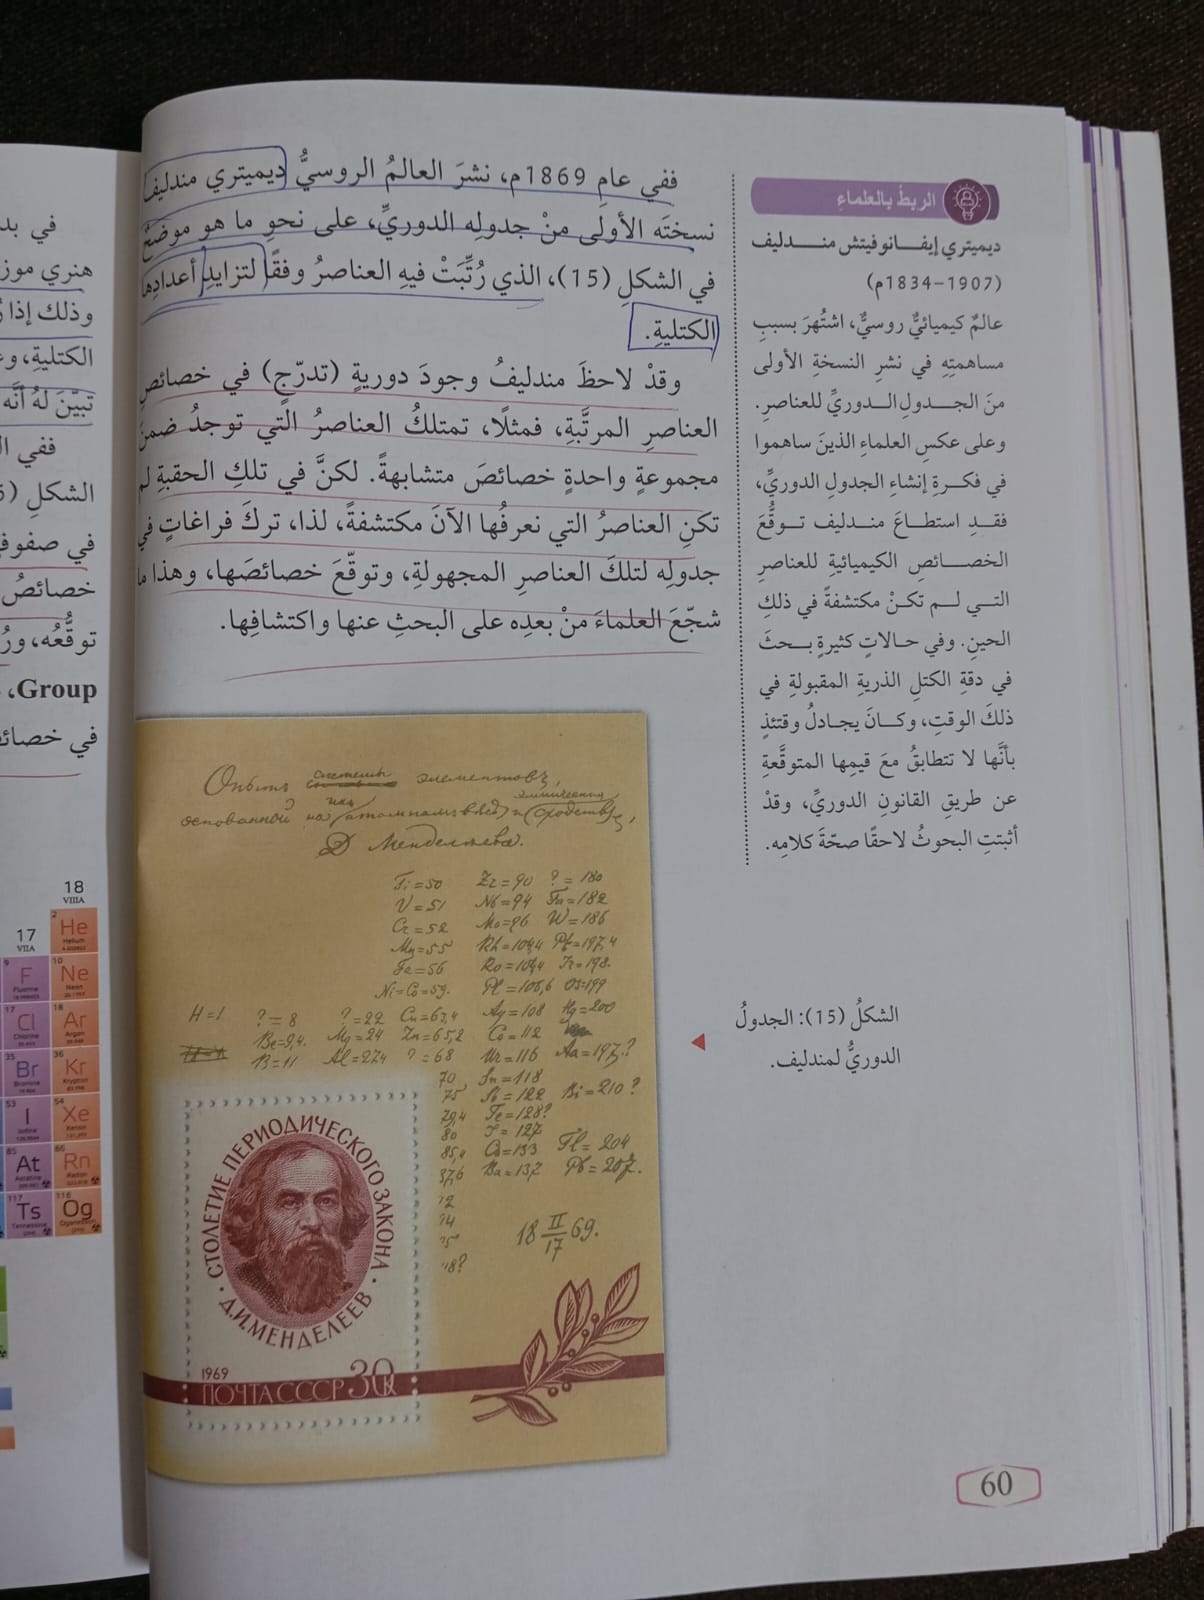 ففي عامِ 1869م، نشرَ العالمُ الروسيُّ ديميتري مندليف
نسختَه الأولى منْ جدولِه الدوريِّ، على نحوِ ما هو موضحٌ
في الشكلِ (15)، الذي رُتِّبَتْ فيهِ العناصرُ وفقًا لتزايدِ أعدادِها
الكتليةِ.
وقدْ لاحظَ مندليفُ وجودَ دوريةٍ (تدرّجٍ) في خصائصِ
العناصرِ المرتَّبةِ، فمثلًا، تمتلكُ العناصرُ التي توجدُ ضمنَ
مجموعةٍ واحدةٍ خصائصَ متشابهةً. لكنَّ في تلكِ الحقبةِ لم
تكنِ العناصرُ التي نعرفُها الآنَ مكتشفةً، لذا، تركَ فراغاتٍ في
جدولِه لتلكَ العناصرِ المجهولةِ، وتوقّعَ خصائصَها، وهذا ما
شجّعَ العلماءَ منْ بعدِه على البحثِ عنها واكتشافِها.
الربطُ بالعلماءِ
ديميتري إيفانوفيتش مندليف
(1834–1907م)
عالمٌ كيميائيٌّ روسيٌّ، اشتُهرَ بسببِ
مساهمتِهِ في نشرِ النسخةِ الأولى
منَ الجدولِ الدوريِّ للعناصرِ.
وعلى عكسِ العلماءِ الذينَ ساهموا
في فكرةِ إنشاءِ الجدولِ الدوريِّ،
فقدِ استطاعَ مندليف توقُّعَ
الخصائصِ الكيميائيةِ للعناصرِ
التي لم تكنْ مكتشفةً في ذلكِ
الحينِ. وفي حالاتٍ كثيرةٍ بحثَ
في دقةِ الكتلِ الذريةِ المقبولةِ في
ذلكَ الوقتِ، وكانَ يجادلُ وقتئذٍ
بأنَّها لا تتطابقُ معَ قيمِها المتوقَّعةِ
عن طريقِ القانونِ الدوريِّ، وقدْ
أثبتتِ البحوثُ لاحقًا صحّةَ كلامِه.
Опытъ системы элементовъ,
основанной на атомномъ вѣсѣ и химическомъ сходствѣ,
Д Менделѣева.
Ti=50 Zr=90 ?=180
V=51 Nb=94 Ta=182
Cr=52 Mo=96 W=186
Mn=55 Rh=104,4 Pt=197,4
Fe=56 Ro=104,4 Ir=198.
Ni=Co=59. Pl=106,6 Os=199
H=1 ?=8 ?=22 Cu=63,4 Ag=108 Hg=200
Be=9,4. Mg=24 Zn=65,2 112
B=11 Al=27,4 ?=68 Ur=116 197?
70 Sn=118
75 122 Bi=210?
79,4 Te=128?
80 J=127
85,4 133 Tl=204
87,6 Ba=137 Pb=207.
18 II/17 69.
СТОЛЕТИЕ ПЕРИОДИЧЕСКОГО ЗАКОНА
Д.И.МЕНДЕЛЕЕВ
1969
ПОЧТА СССР 30
الشكلُ (15): الجدولُ
الدوريُّ لمندليف.
60
في بد
هنري موز
الكتليةِ، وع
تبيّنَ لهُ أنَّه
الشكلِ
خصائصُ
توقُّعُه، ورُ
Group،
18
VIIIA
17
VIIA
2
He
Helium
9
F
Fluorine
10
Ne
Neon
17
Cl
Chlorine
18
Ar
Argon
35
Br
Bromine
36
Kr
Krypton
53
I
Iodine
54
Xe
Xenon
85
At
Astatine
86
Rn
Radon
117
Ts
Tennessine
118
Og
Oganesson